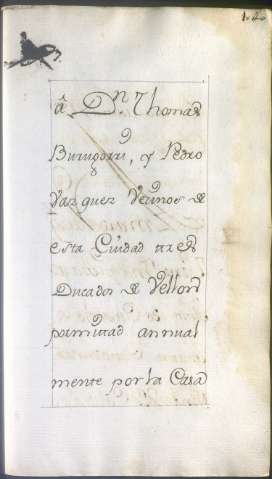 â Dn. Thomas
Burugorri, y Pedro
Vazquez Vecinos de
esta Ciudad tres
Ducados de Vellon
por mitad annual
mente por la Casa